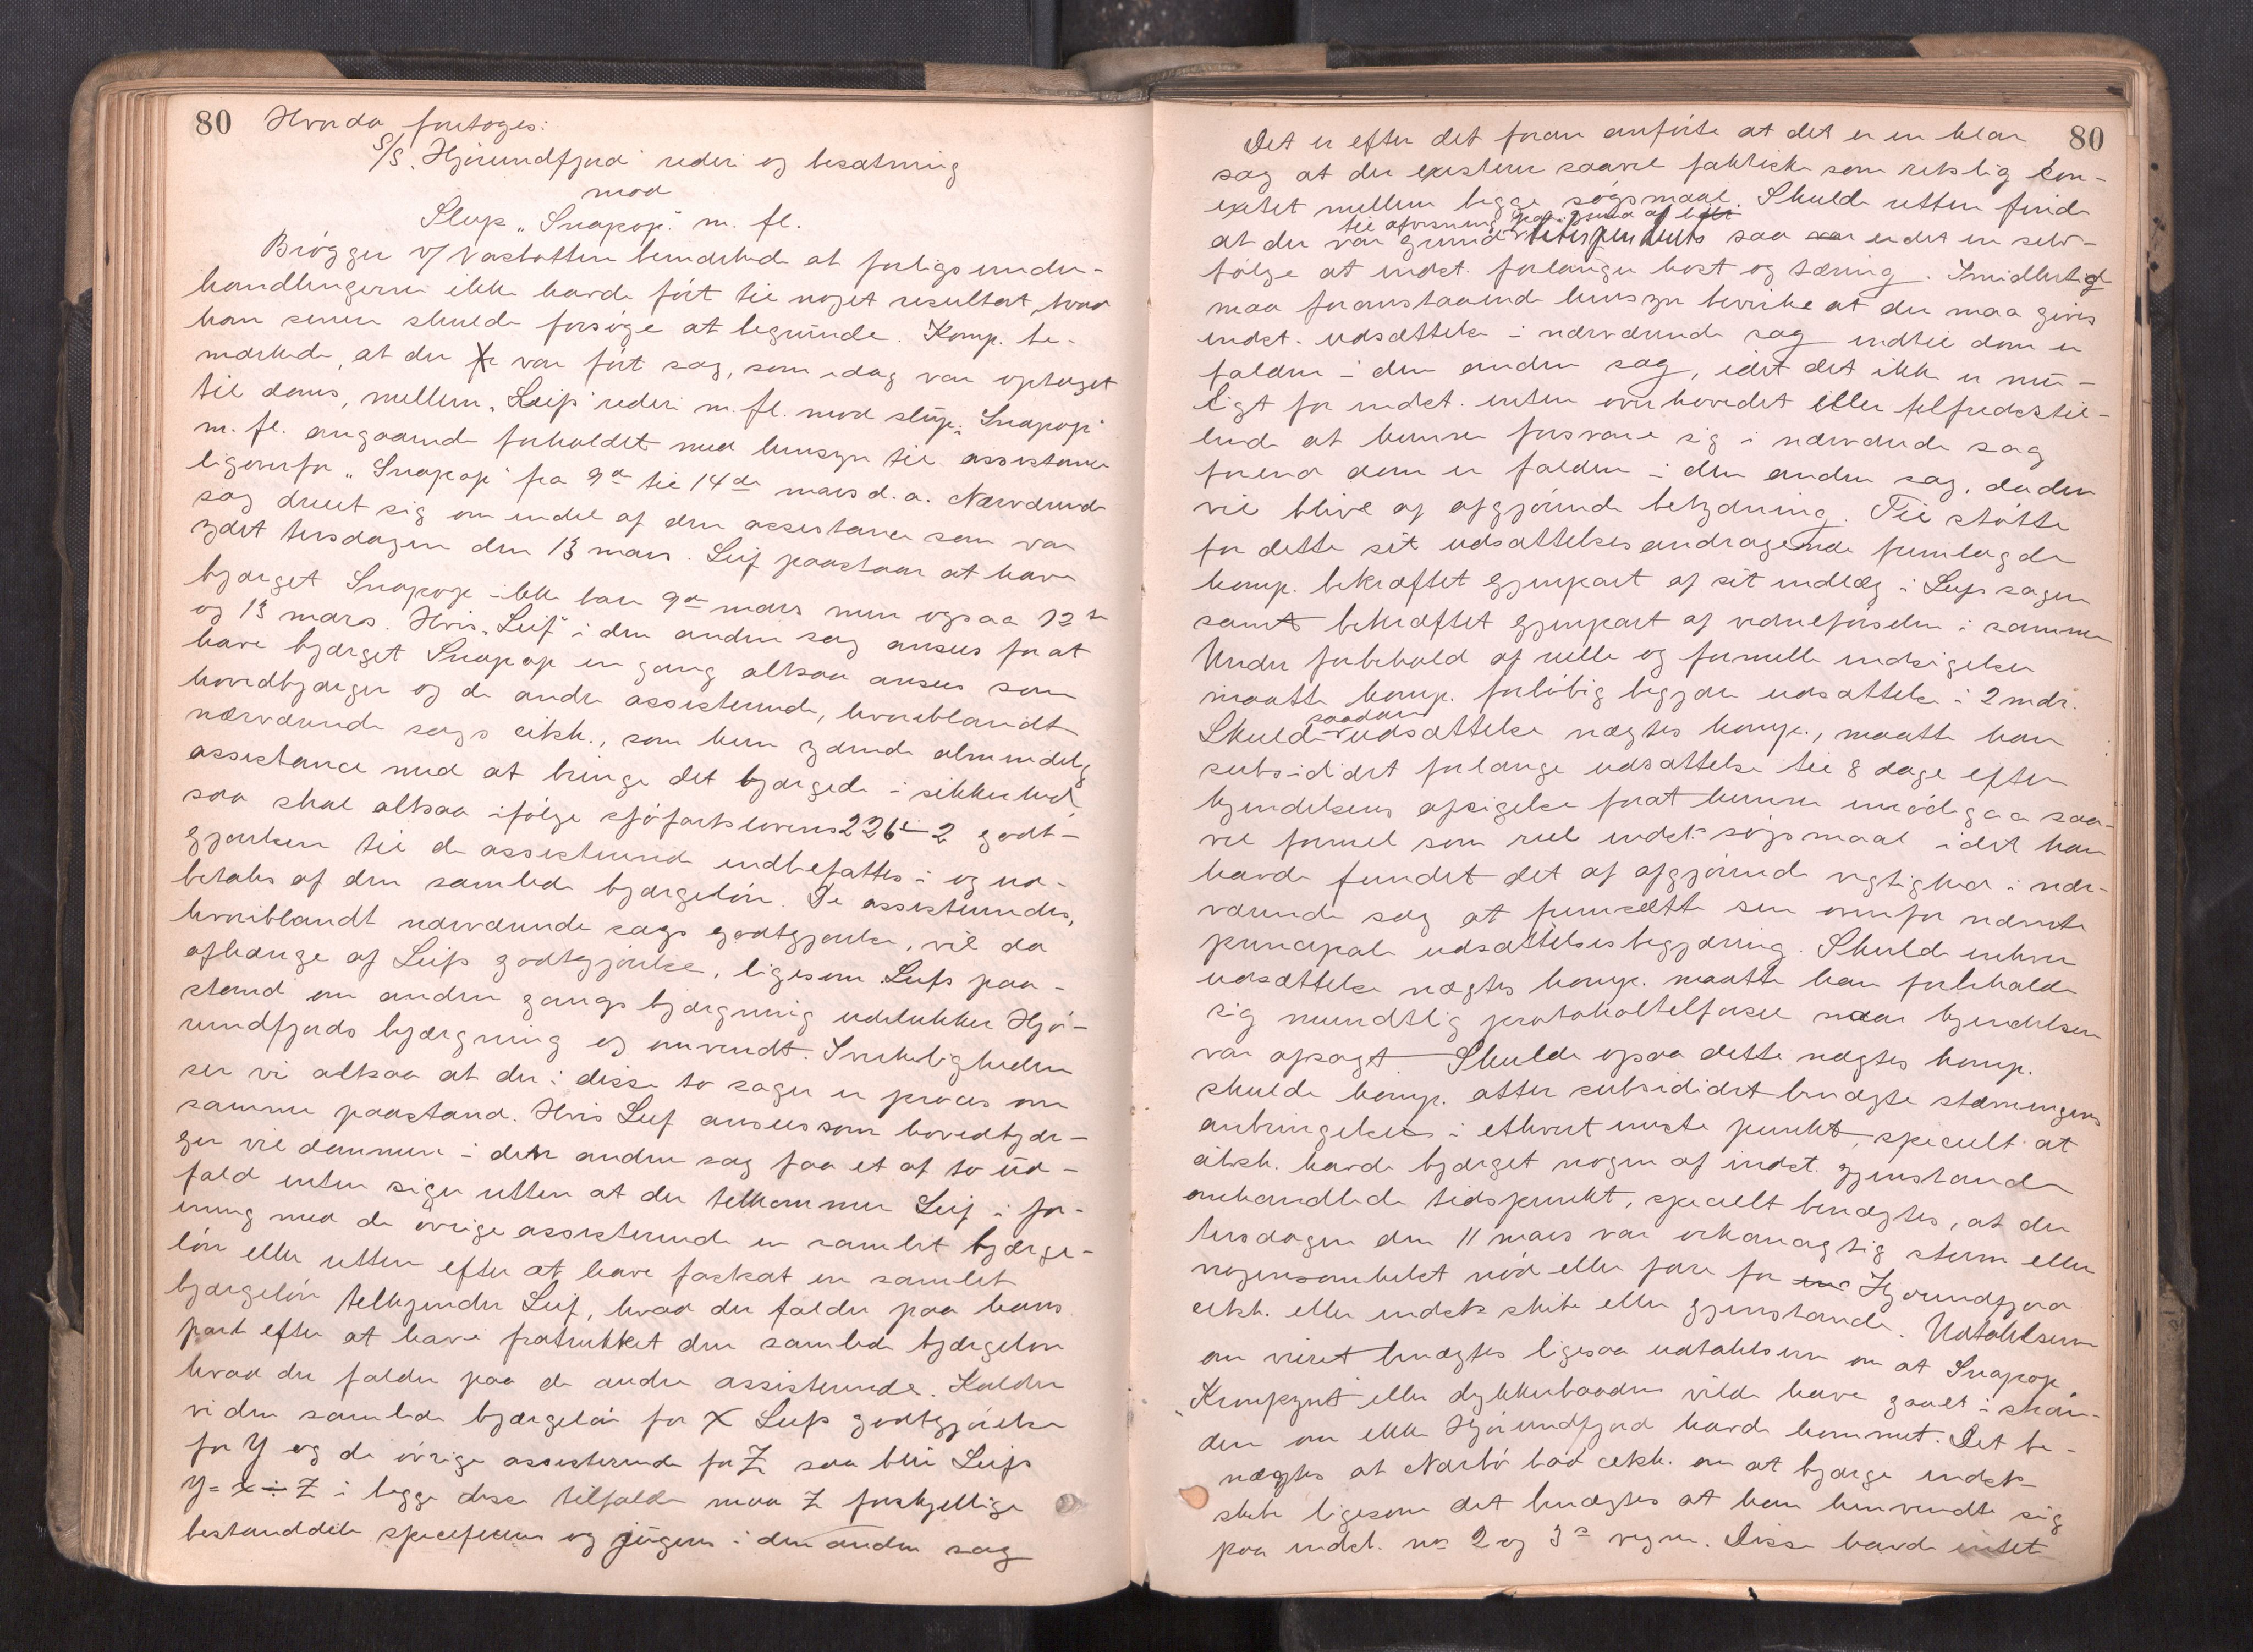 80 Hvorda foretoges:
S/S „Hjörundfjord" rederi og besætning
mod
Slup „Snapop" m. fl.
Brøgger v/ Vastøtten bemerkede at forligsunder-
handlingerne ikke havde ført til noget resultat, hvad
han senere skulde forsøge at begrunde. Komp. be-
mærkede, at der var ført sag, som idag var optaget
til doms, mellem „Leif" rederi m. fl. mod slup „Snapop"
m. fl. angaaende forholdet med hensyn til assistance
ligeoverfor „Snapop" fra 9de til 14de mars d. a. Nærværende
sag dreiet sig om endel af den assistance som var
ydet tirsdagen den 13 mars. Leif paastaar at have
bjærget Snapop ikke bare 9de mars men ogsaa 12te
og 13 mars. Hvis „Leif" i den anden sag ansees for at
have bjærget Snapop en gang altsaa ansees som
hovedbjærger og de andre assisterende, hvoriblandt
nærværende sags citkk., som kun ydende almindelig
assistance med at bringe det bjærgede i sikkerhed
saa skal altsaa ifølge sjøfartslovens 226 - 2 godt-
gjørelsen til de assisterende indbefattes i og ud-
betales af den samlede bjærgeløn. De assisterendes,
hvoriblandt nærværende sags godtgjørelse, vil da
afhænge af Leifs godtgjørelse, ligesom Leifs paa-
stand om anden gangs bjærgning udelukker Hjø-
rundfjords bjærgning og omvendt. I virkeligheden
ser vi altsaa at der i disse to sager er proces om
samme paastand. Hvis Leif ansees som hovedbjær-
ger vil dommen i den anden sag faa et af to ud-
fald enten siger retten at der tilkommer Leif i for-
ening med de øvrige assisterende en samlet bjærge-
løn eller retten efter at have fastsat en samlet
bjærgeløn tilkjender Leif, hvad der falder paa hans
part efter at have fratrukket den samlede bjærgeløn
hvad der falder paa de andre assisterende. Kalder
vi den samlede bjærgeløn for X Leifs godtgjørelse
for Y og de øvrige assisterende for Z saa blir Leifs
Y = X ÷ Z i begge disse tilfælde maa Z forskjellige
bestanddele specificeres og i den anden sag
80
Det er efter det foran anførte at det er en klar
sag at der existerer saavel faktisk som retslig kon-
exitet mellem begge søgsmaal. Skulde retten finde
til afvisning paa grund af
at der var grund litispendents saa er det en selv-
følge at indst. forlanger kost og tæring. Imidlertid
maa foranstaaende hensyn bevirke at der maa gives
indst. udsættelse i nærværende sag indtil dom er
falden i den anden sag, idet det ikke er mu-
ligt for indst. enten overhovedet eller tilfredsstil-
lende at kunne forsvare sig i nærværende sag
førend dom er falden i den anden sag, da den
vil blive af afgjørende betydning. Til støtte
for dette sit udsættelsesandragende fremlagde
komp. bekræftet gjenpart af sit indlæg i Leifs sagen
samt bekræftet gjenpart af vidneførselen i samme
Under forbehold af reelle og formelle indsigelser
maatte komp. foreløbig begjære udsættelse i 2 mdr.
saadan
Skulde udsættelse nægtes komp., maatte han
subsidiært forlange udsættelse til 8 dage efter
kjendelsens afsigelse forat kunne imødegaa saa-
vel formel som reel indst. søgsmaal idet han
havde fundet det af afgjørende vigtighed i nær-
værende sag at fremsætte sin ovenfor nævnte
principale udsættelsesbegjæring. Skulde enhver
udsættelse nægtes komp. maatte han forbeholde
sig mundtlig protokoltilførsel naar kjendelsen
var afsagt. Skulde ogsaa dette nægtes komp.
skulde komp. atter subsidiært benægte stævningens
anbringelser i ethvert eneste punkt, specielt at
citkk. havde bjærget nogen af indst. gjenstande
omhandlede tidspunkt, specielt benægtes, at der
tirsdagen den 11 mars var orkanagtig storm eller
nogensomhelst nød eller fare for Hjørundfjord
citkk. eller indsts skibe eller gjenstande. Udtalelserne
om veiret benægtes ligesaa udtalelserne om at Snapop,
„Krompynt" eller dykkerbaaden vilde have gaaet i stran-
den om ikke Hjørundfjord havde kommet. Det be-
nægtes at Nærbø bad citkk. om at bjærge indst-
skibe ligesom det benægtes at han henvendte sig
paa indst. no 2 og 3s vegne. Disse havde intet